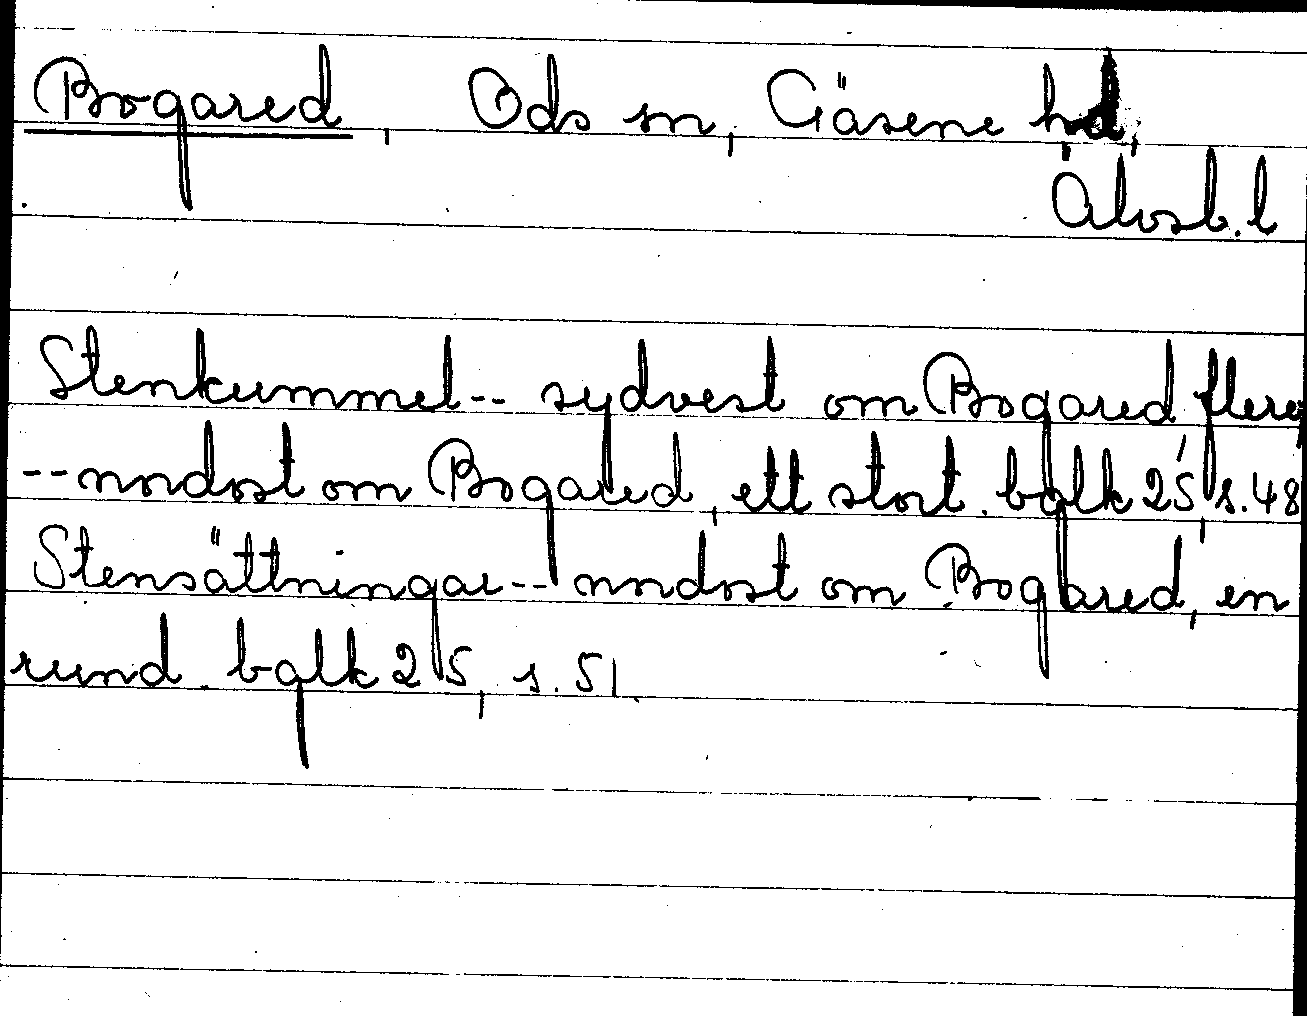 Bogared, Ods sn, Gäsene hd,
Älvsb. l
Stenkummel -- sydvest om Bogared flere
-- nordost om Bogared, ett stort. bglk 25, s. 48
Stensättningar -- nordost om Bogared, en
rund. bglk 25, s. 51.